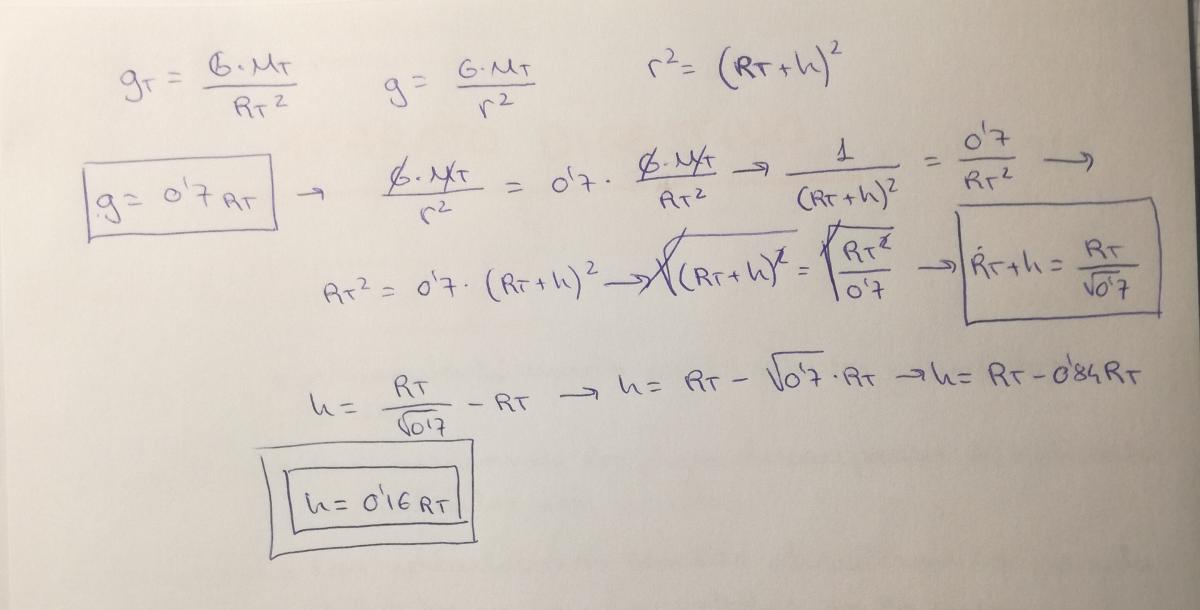 g_T = G·M_T / R_T²   g = G·M_T / r²   r² = (R_T + h)²
g = 0'7 R_T → G·M_T / r² = 0'7 · G·M_T / R_T² → 1 / (R_T + h)² = 0'7 / R_T² →
R_T² = 0'7 · (R_T + h)² → √(R_T + h)² = √(R_T² / 0'7) → R_T + h = R_T / √0'7
h = R_T / √0'7 − R_T → h = R_T − √0'7 · R_T → h = R_T − 0'84 R_T
h = 0'16 R_T